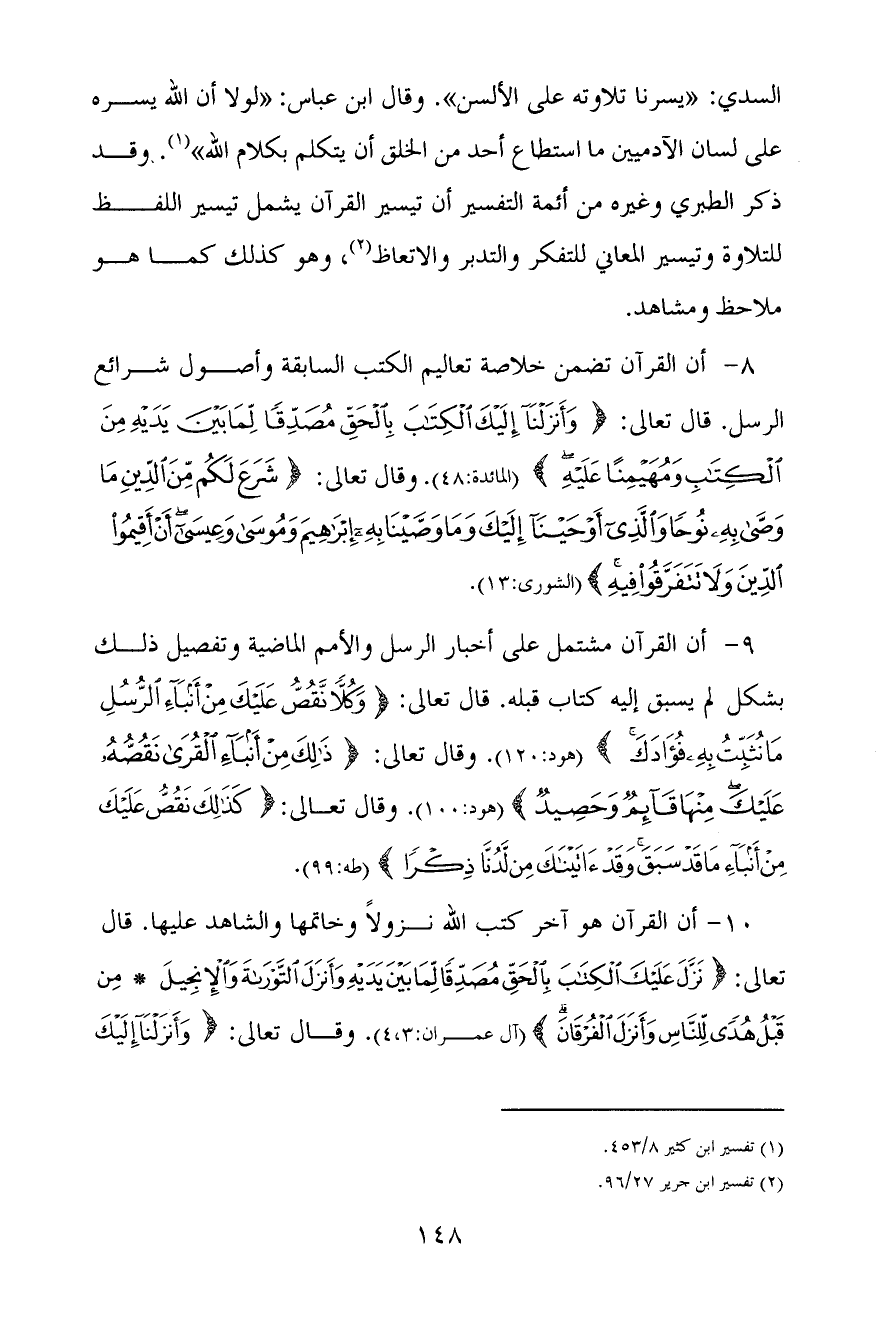 السدي: «يسرنا تلاوته على الألسن». وقال ابن عباس: «لولا أن الله يسره
على لسان الآدميين ما استطاع أحد من الخلق أن يتكلم بكلام الله»(١). وقد
ذكر الطبري وغيره من أئمة التفسير أن تيسير القرآن يشمل تيسير اللفظ
للتلاوة وتيسير المعاني للتفكر والتدبر والاتعاظ(٢)، وهو كذلك كما هو
ملاحظ ومشاهد.
٨- أن القرآن تضمن خلاصة تعاليم الكتب السابقة وأصول شرائع
الرسل. قال تعالى: ﴿ وَأَنزَلْنَآ إِلَيْكَ ٱلْكِتَٰبَ بِٱلْحَقِّ مُصَدِّقًا لِّمَا بَيْنَ يَدَيْهِ مِنَ
ٱلْكِتَٰبِ وَمُهَيْمِنًا عَلَيْهِۖ ﴾ (المائدة:٤٨). وقال تعالى: ﴿ شَرَعَ لَكُم مِّنَ ٱلدِّينِ مَا
وَصَّىٰ بِهِۦ نُوحًا وَٱلَّذِىٓ أَوْحَيْنَآ إِلَيْكَ وَمَا وَصَّيْنَا بِهِۦٓ إِبْرَٰهِيمَ وَمُوسَىٰ وَعِيسَىٰٓۖ أَنْ أَقِيمُوا۟
ٱلدِّينَ وَلَا تَتَفَرَّقُوا۟ فِيهِۚ ﴾ (الشورى:١٣).
٩- أن القرآن مشتمل على أخبار الرسل والأمم الماضية وتفصيل ذلك
بشكل لم يسبق إليه كتاب قبله. قال تعالى: ﴿ وَكُلًّا نَّقُصُّ عَلَيْكَ مِنْ أَنۢبَآءِ ٱلرُّسُلِ
مَا نُثَبِّتُ بِهِۦ فُؤَادَكَۚ ﴾ (هود:١٢٠). وقال تعالى: ﴿ ذَٰلِكَ مِنْ أَنۢبَآءِ ٱلْقُرَىٰ نَقُصُّهُۥ
عَلَيْكَۖ مِنْهَا قَآئِمٌ وَحَصِيدٌ ﴾ (هود:١٠٠). وقال تعالى: ﴿ كَذَٰلِكَ نَقُصُّ عَلَيْكَ
مِنْ أَنۢبَآءِ مَا قَدْ سَبَقَۚ وَقَدْ ءَاتَيْنَٰكَ مِن لَّدُنَّا ذِكْرًا ﴾ (طه:٩٩).
١٠- أن القرآن هو آخر كتب الله نزولاً وخاتمها والشاهد عليها. قال
تعالى: ﴿ نَزَّلَ عَلَيْكَ ٱلْكِتَٰبَ بِٱلْحَقِّ مُصَدِّقًا لِّمَا بَيْنَ يَدَيْهِ وَأَنزَلَ ٱلتَّوْرَىٰةَ وَٱلْإِنجِيلَ * مِن
قَبْلُ هُدًى لِّلنَّاسِ وَأَنزَلَ ٱلْفُرْقَانَۗ ﴾ (آل عمران:٤،٣). وقال تعالى: ﴿ وَأَنزَلْنَآ إِلَيْكَ
(١) تفسير ابن كثير ٤٥٣/٨.
(٢) تفسير ابن جرير ٩٦/٢٧.
١٤٨